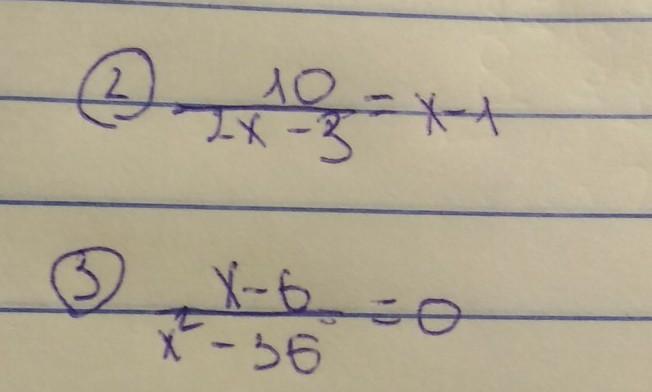 ② 10/(2x - 3) = x - 1
③ (x - 6)/(x² - 36) = 0